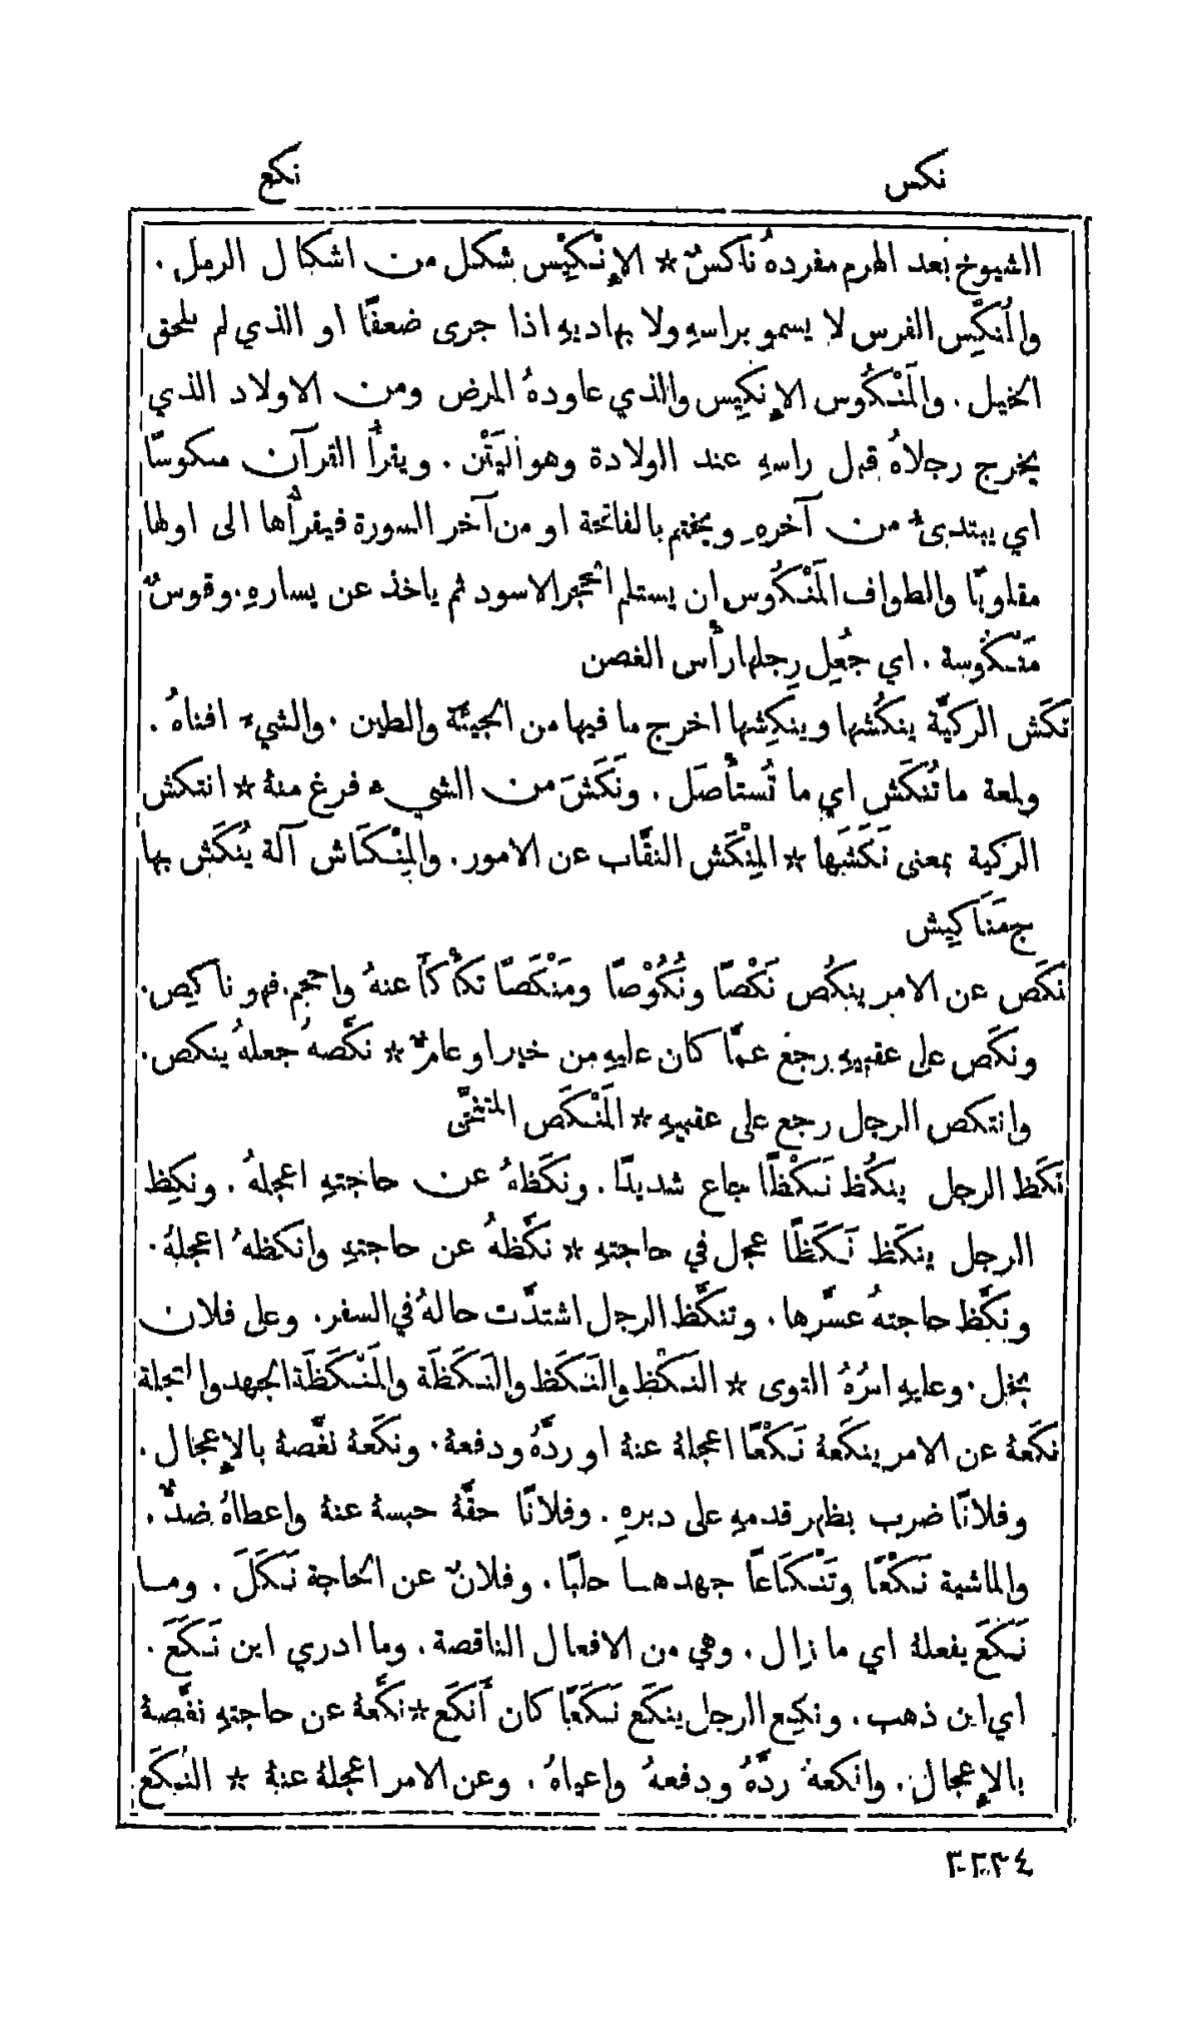 نكس
نكع
الشيوخ بعد الهرم مفردهُ ناكسٌ * الإِنْكِيْس شكل من اشكال الرمل .
والمُنَكِّس الفرس لا يسمو براسهِ ولا بهاديهِ اذا جرى ضعفًا او الذي لم يلحق
الخيل . والمَنْكُوس الإِنكِيس والذي عاودهُ المرض ومن الاولاد الذي
يخرج رجلاهُ قبل راسهِ عند الولادة وهو اليَتْن . ويقرأُ القرآن منكوسًا
اي يبتدئُ من آخرهِ ويختم بالفاتحة او من آخر السورة فيقرأُها الى اولها
مقلوبًا والطواف المَنْكُوس ان يستلم الحجر الاسود ثم ياخذ عن يسارهِ. وقوسٌ
مَنْكُوسة . اي جُعِل رِجلها رأْس الغصن
نكَش الركيَّة ينكُشها وينكِشها اخرج ما فيها من الجيئَة والطين . والشيءَ افناهُ .
ولمعة ما تُنكَش اي ما تُستأْصَل . ونَكَشَ من الشيء فرغ منهُ * انتكش
الركية بمعنى نَكَشَها * المِنْكَش النقَّاب عن الامور . والمِنْكَاش آلة يُنكَش بها
ج مَنَاكِيش
نكَص عن الامر ينكُص نَكْصًا ونُكُوْصًا ومَنْكَصًا تكأْكأَ عنهُ واحجم. فهو ناكِص.
ونكَص على عقبيهِ رجع عمَّا كان عليهِ من خير او عامٌّ * نكَّصهُ جعلهُ ينكص.
وانتكص الرجل رجع على عقبيهِ * المَنْكَص المتنحَّى
نكَظ الرجل ينكُظ نَكْظًا جاع شديدًا . ونكَظهُ عن حاجتهِ اعجلهُ . ونكِظ
الرجل ينكَظ نَكَظًا عجل في حاجتهِ * نكَّظهُ عن حاجتهِ وانكظهُ اعجلهُ .
ونكَّظ حاجتهُ عسَّرها . وتنكَّظ الرجل اشتدَّت حالهُ في السفر. وعلى فلان
بخل . وعليهِ امرُهُ التوى * النَكْظ والنَكَظ والنَكَظَة والمَنْكَظَة الجهد والعجلة
نكَعهُ عن الامر ينكَعهُ نَكْعًا اعجلهُ عنهُ او ردَّهُ ودفعهُ . ونكَعهُ نغَّصهُ بالإِعجال .
وفلانًا ضرب بظهر قدمهِ على دبرهِ . وفلانًا حقَّهُ حبسهُ عنهُ واعطاهُ ضدٌّ .
والماشية نَكْعًا وتَنْكَاعًا جهدهــا حلبًا . وفلانٌ عن الحاجة نَكَلَ . ومــا
نَكَعَ يفعلهُ اي ما زال . وهي من الافعال الناقصة . وما ادري اين نَكَعَ .
اي اين ذهب . ونكِع الرجل ينكَع نَكَعًا كان أَنكَع * نكَّعهُ عن حاجتهِ نغَّصهُ
بالإِعجال . وانكعهُ ردَّهُ ودفعهُ واعياهُ . وعن الامر اعجلهُ عنهُ * النُكَع